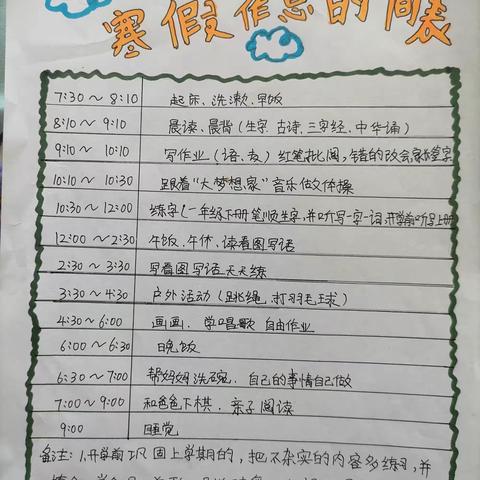 寒假作息的间表
7:30～8:10 起床、洗漱、早饭
8:10～9:10 晨读、晨背（生字、古诗、三字经、中华诵）
9:10～10:10 写作业（语、数）红笔批阅，错的改会，家长签字
10:10～10:30 跟着“大梦想家”音乐做文体操
10:30～12:00 练字（一年级下册笔顺生字，并听写一字一词，开学前听写上册
12:00～2:30 午饭、午休、读看图写话
2:30～3:30 写看图写话天天练
3:30～4:30 户外活动（跳绳、打羽毛球）
4:30～6:00 画画、学唱歌 自由作业
6:00～6:30 晚饭
6:30～7:00 帮妈妈洗碗、自己的事情自己做
7:00～9:00 和爸爸下棋、亲子阅读
9:00 睡觉
备注：1.开学前巩固上学期的，把不扎实的内容多练习，并